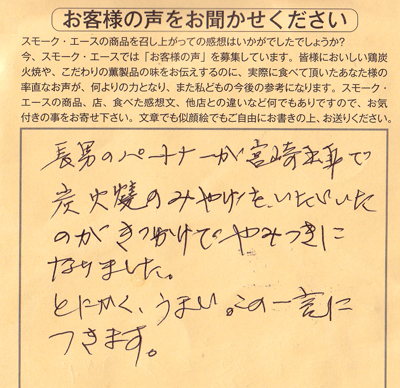 お客様の声をお聞かせください
スモーク・エースの商品を召し上がっての感想はいかがでしたでしょうか？
今、スモーク・エースでは「お客様の声」を募集しています。皆様においしい鶏炭
火焼や、こだわりの薫製品の味をお伝えするのに、実際に食べて頂いたあなた様の
率直なお声が、何よりの力となり、また私どもの今後の参考になります。スモーク・
エースの商品、店、食べた感想文、他店との違いなど何でもありですので、お気
付きの事をお寄せ下さい。文章でも似顔絵でもご自由にお書きの上、お送りください。
長男のパートナーが宮崎出身で
炭火焼のみやげを、いただいた
のがきっかけでやみつきに
なりました。
とにかく、うまい。この一言に
つきます。